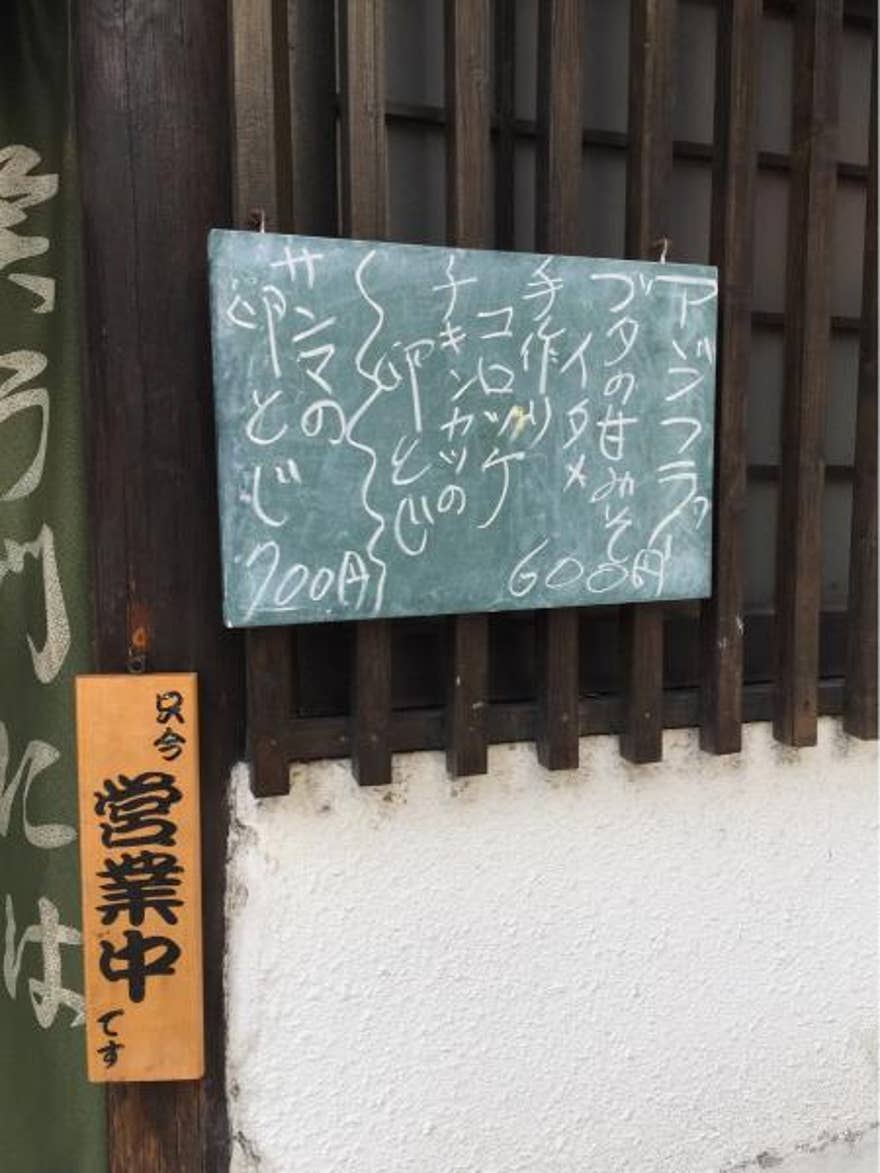 アジフライ
ブタの甘みそ
イタメ
手作リ
コロッケ
チキンカツの
卵とじ
600円
サンマの
卵とじ
700円
只今
営業中
です
門には